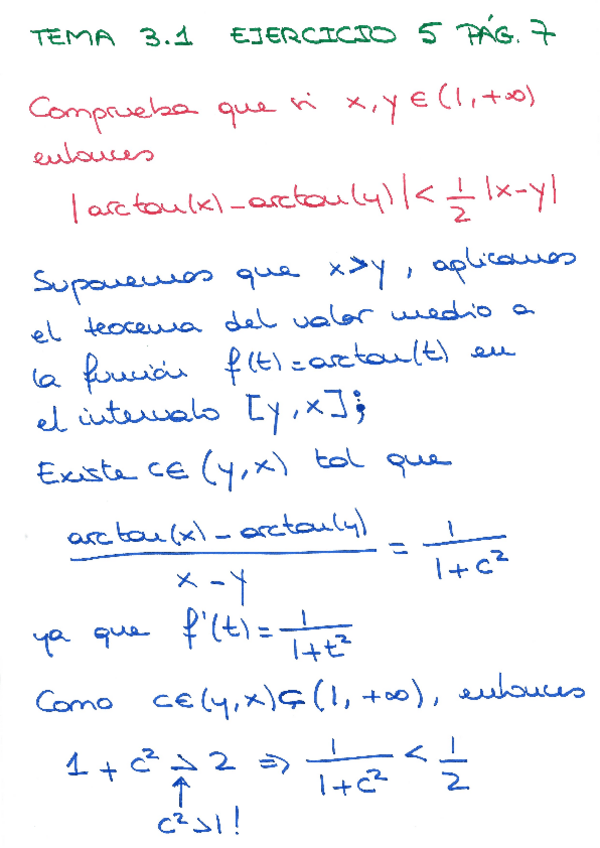 TEMA 3.1 EJERCICIO 5 PÁG. 7
Comprueba que si x, y ∈ (1, +∞)
entonces
|arctan(x) - arctan(y)| < 1/2 |x-y|
Suponemos que x>y, aplicamos
el teorema del valor medio a
la función f(t) = arctan(t) en
el intervalo [y, x];
Existe c∈ (y, x) tal que
(arctan(x) - arctan(y))/(x-y) = 1/(1+c²)
ya que f'(t) = 1/(1+t²)
Como c∈(y,x)⊊(1, +∞), entonces
1 + c² > 2 ⇒ 1/(1+c²) < 1/2
↑
c²>1!